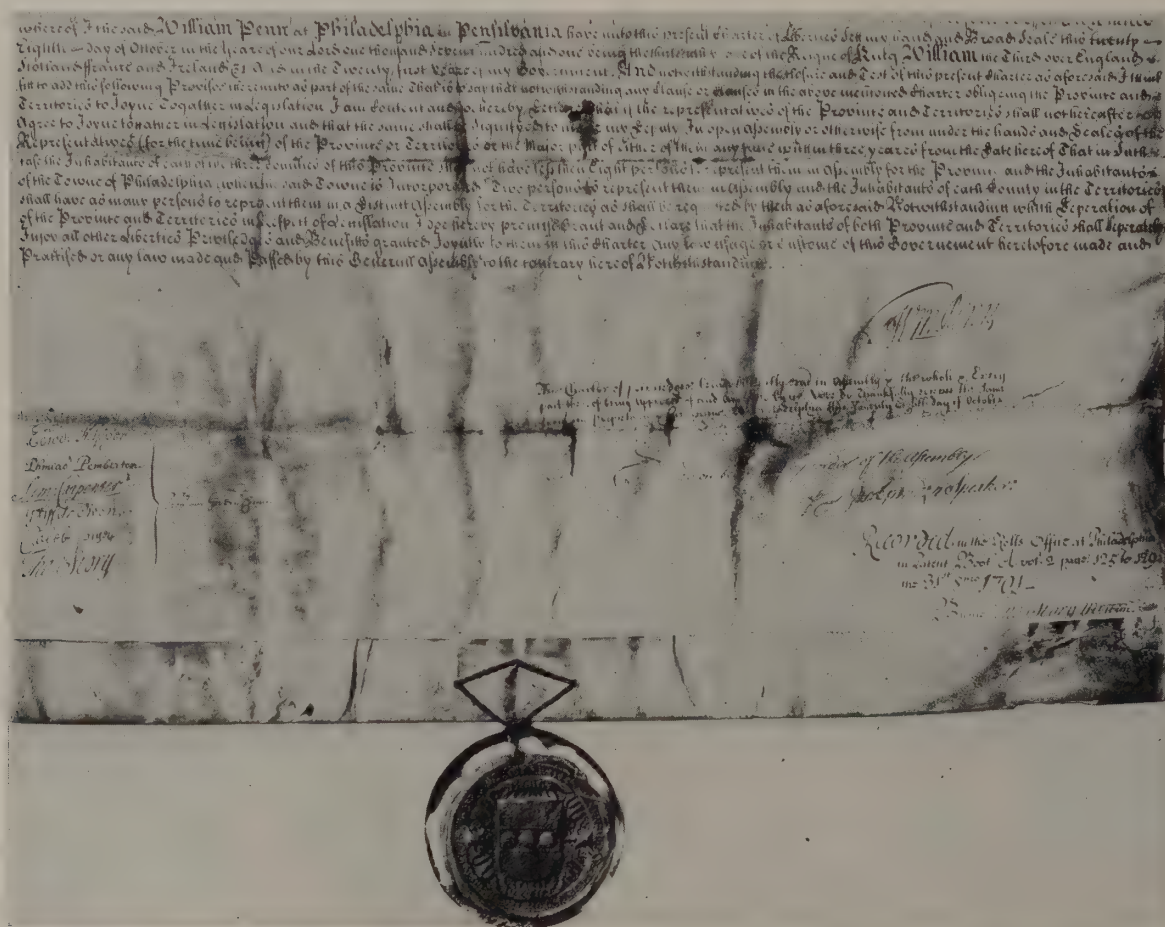 whereof I the said William Penn at Philadelphia in Pensilvania have unto this present Charter of Liberties sett my hand and Broad Seale this twenty
Eighth day of October in the Yeare of our Lord one thousand Seven hundred and one being the thirteenth yeare of the Reigne of King William the Third over England
Scotland ffrance and Ireland &c And in the Twenty first Yeare of my Government. And notwithstanding the closure and Test of this present Charter as aforesaid I think
fit to add this following Proviso thereunto as part of the same That is to say that notwithstanding any Clause or Clauses in the above mencioned Charter obligeing the Province and
Territories to Joyne Togather in Legislation I am Content and do hereby Declare That if the representatives of the Province and Territories shall not hereafter
Agree to Joyne togather in Legislation and that the same shall be Signifyed to me or my Deputy In open Assembly or otherwise from under the hands and Seales of the
Representatives (for the time being) of the Province or Territories or the Major part of either of them any time within three yeares from the Date hereof That in such
case the Inhabitants of each of the three Counties of this Province shall not have less then Eight persons to represent them in Assembly for the Province and the Inhabitants
of the Towne of Philadelphia (when the said Towne is Incorporated) Two persons to represent them in Assembly and the Inhabitants of each County in the Territories
shall have as many persons to represent them in a Distinct Assembly for the Territories as shall be requested by them as aforesaid Notwithstanding which Seperation of
of the Province and Territories in Respect of Legislation I doe hereby promise Grant and Declare that the Inhabitants of both Province and Territories shall Seperately
Injoy all other Liberties Priviledges and Benefitts granted Joyntly to them in this Charter any law usage or custome of this Governement heretofore made and
Practised or any law made and Passed by this Generall Assembly to the contrary hereof Notwithstanding.
Wm Penn
This Charter of
being approved of and
Phineas Pemberton
Sam Carpenter
Griffith Owen
Caleb Pusey
Tho Story
of the Assembly
Joseph Speaker
Recorded in the Rolls Office at Philadelphia
in Patent Book A vol: 2 page: 125 to
the 31st 1701